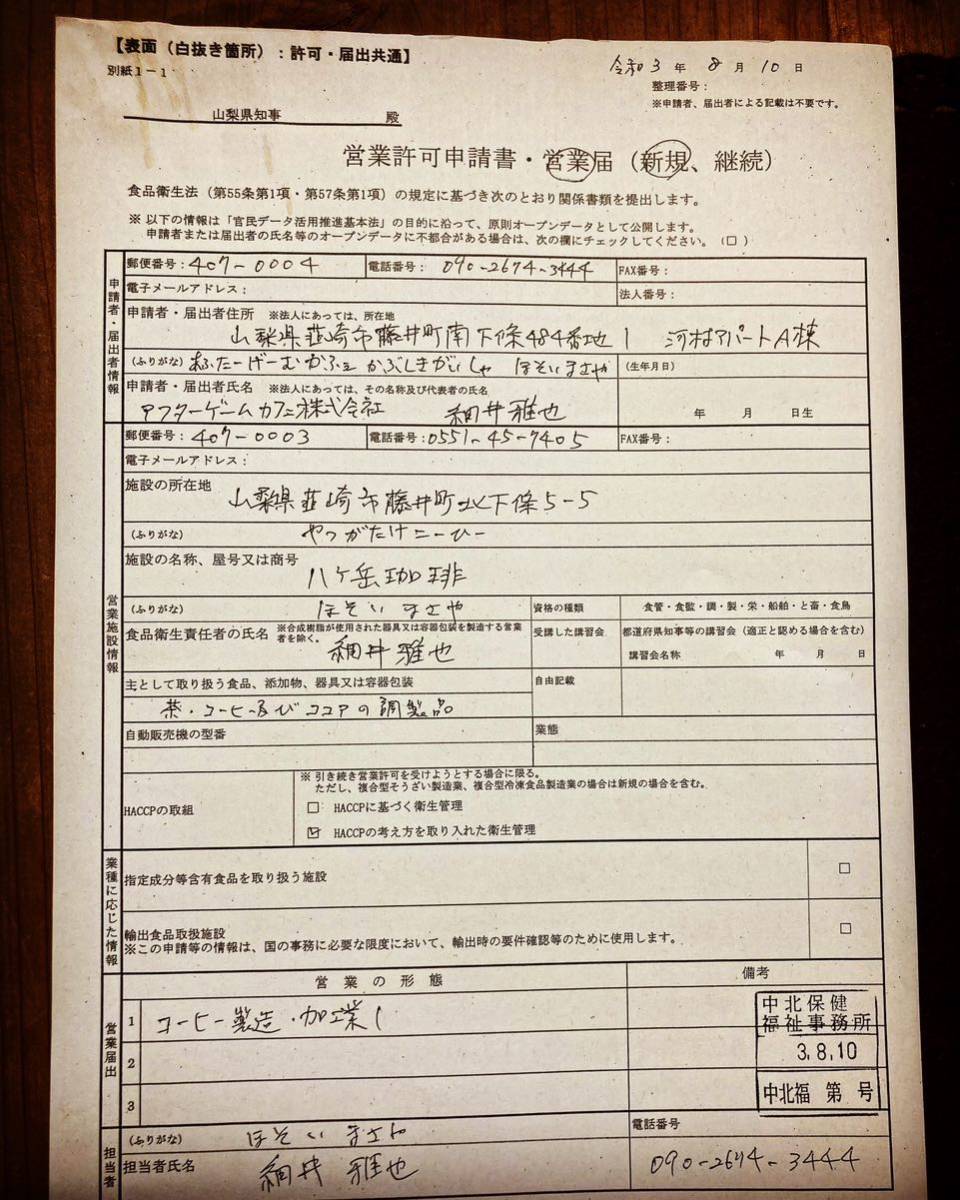 【表面（白抜き箇所）：許可・届出共通】
別紙1－1
令和 3 年 8 月 10 日
整理番号：
※申請者、届出者による記載は不要です。
山梨県知事 殿
営業許可申請書・営業届（新規、継続）
食品衛生法（第55条第1項・第57条第1項）の規定に基づき次のとおり関係書類を提出します。
※ 以下の情報は「官民データ活用推進基本法」の目的に沿って、原則オープンデータとして公開します。
申請者または届出者の氏名等のオープンデータに不都合がある場合は、次の欄にチェックしてください。（□）
申請者・届出者情報
郵便番号：407-0004 電話番号：090-2674-3444 FAX番号：
電子メールアドレス： 法人番号：
申請者・届出者住所 ※法人にあっては、所在地
山梨県韮崎市藤井町南下條484番地1 河村アパートA棟
（ふりがな）あふたーげーむかふぇ かぶしきがいしゃ ほそいまさや （生年月日）
申請者・届出者氏名 ※法人にあっては、その名称及び代表者の氏名
アフターゲームカフェ株式会社 細井雅也 年 月 日生
営業施設情報
郵便番号：407-0003 電話番号：0551-45-7405 FAX番号：
電子メールアドレス：
施設の所在地
山梨県韮崎市藤井町北下條5-5
（ふりがな） やつがたけこーひー
施設の名称、屋号又は商号
八ヶ岳珈琲
（ふりがな） ほそい まさや 資格の種類 食管・食監・調・製・栄・船舶・と畜・食鳥
食品衛生責任者の氏名 ※合成樹脂が使用された器具又は容器包装を製造する営業者を除く。 受講した講習会 都道府県知事等の講習会（適正と認める場合を含む）
細井 雅也 講習会名称 年 月 日
主として取り扱う食品、添加物、器具又は容器包装 自由記載
茶・コーヒー及びココアの調製品
自動販売機の型番 業態
HACCPの取組
※ 引き続き営業許可を受けようとする場合に限る。
ただし、複合型そうざい製造業、複合型冷凍食品製造業の場合は新規の場合を含む。
□ HACCPに基づく衛生管理
☑ HACCPの考え方を取り入れた衛生管理
業種に応じた情報
指定成分等含有食品を取り扱う施設 □
輸出食品取扱施設 □
※この申請等の情報は、国の事務に必要な限度において、輸出時の要件確認等のために使用します。
営業届出
営業の形態 備考
1 コーヒー製造・加工業
2
3
中北保健
福祉事務所
3.8.10
中北福 第 号
担当者
（ふりがな） ほそい まさや 電話番号
担当者氏名 細井 雅也 090-2674-3444